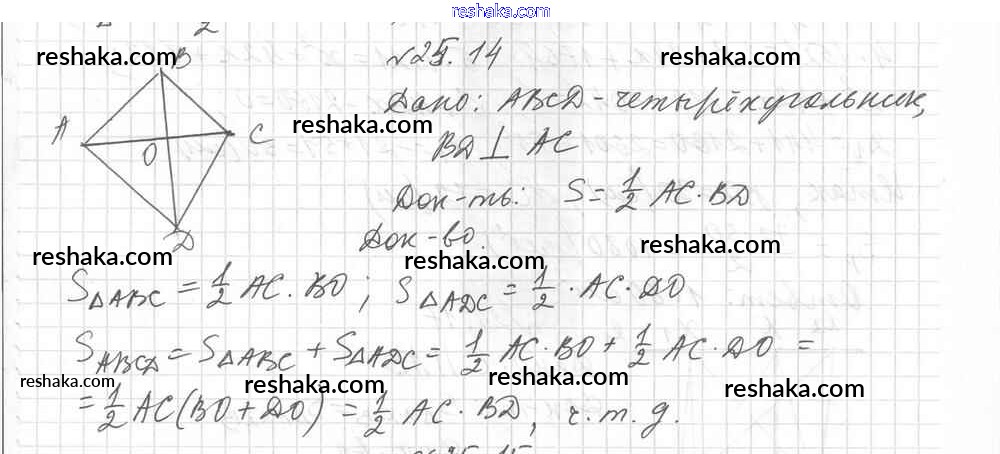 reshaka.com
2
B
№25.14
reshaka.com
reshaka.com
Дано: ABCD - четырёхугольник,
A
O
C
reshaka.com
BD ⊥ AC
Док-ть: S = 1/2 AC · BD
D
Док-во.
reshaka.com
reshaka.com
reshaka.com
S△ABC = 1/2 AC · BO ; S△ADC = 1/2 · AC · DO
SABCD = S△ABC + S△ADC = 1/2 AC · BO + 1/2 AC · DO =
reshaka.com
reshaka.com
reshaka.com
reshaka.com
= 1/2 AC (BO + DO) = 1/2 AC · BD, ч.т.д.